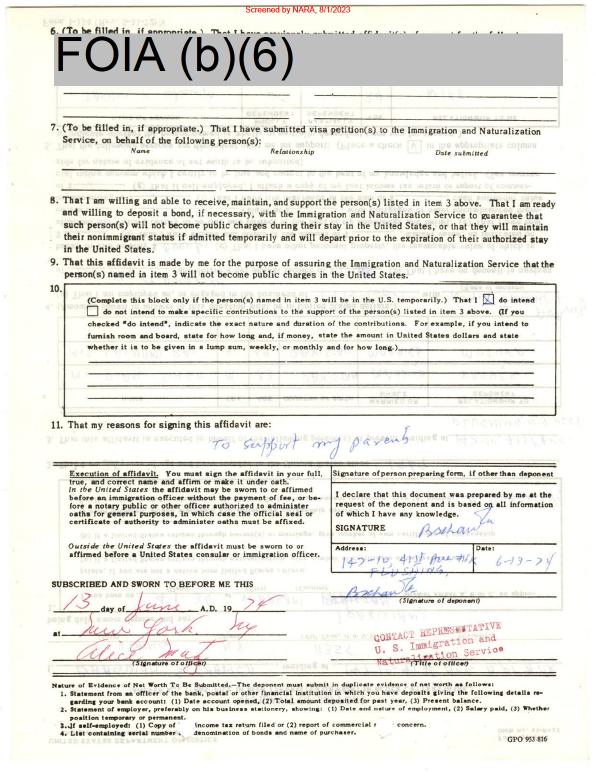 Screened by NARA, 8/1/2023
6. (To be filled in, if appropriate.) That I have previously submitted affidavit(s) of support for the following
FOIA (b)(6)
7. (To be filled in, if appropriate.) That I have submitted visa petition(s) to the Immigration and Naturalization
Service, on behalf of the following person(s):
Name Relationship Date submitted
8. That I am willing and able to receive, maintain, and support the person(s) listed in item 3 above. That I am ready
and willing to deposit a bond, if necessary, with the Immigration and Naturalization Service to guarantee that
such person(s) will not become public charges during their stay in the United States, or that they will maintain
their nonimmigrant status if admitted temporarily and will depart prior to the expiration of their authorized stay
in the United States.
9. That this affidavit is made by me for the purpose of assuring the Immigration and Naturalization Service that the
person(s) named in item 3 will not become public charges in the United States.
10.
(Complete this block only if the person(s) named in item 3 will be in the U.S. temporarily.) That I ☒ do intend
☐ do not intend to make specific contributions to the support of the person(s) listed in item 3 above. (If you
checked "do intend", indicate the exact nature and duration of the contributions. For example, if you intend to
furnish room and board, state for how long and, if money, state the amount in United States dollars and state
whether it is to be given in a lump sum, weekly, or monthly and for how long.)
11. That my reasons for signing this affidavit are:
To support my parents
Execution of affidavit. You must sign the affidavit in your full,
true, and correct name and affirm or make it under oath.
In the United States the affidavit may be sworn to or affirmed
before an immigration officer without the payment of fee, or be-
fore a notary public or other officer authorized to administer
oaths for general purposes, in which case the official seal or
certificate of authority to administer oaths must be affixed.
Outside the United States the affidavit must be sworn to or
affirmed before a United States consular or immigration officer.
Signature of person preparing form, if other than deponent
I declare that this document was prepared by me at the
request of the deponent and is based on all information
of which I have any knowledge.
SIGNATURE
Address: Date:
147-10, 41st Ave 6-13-74
FLUSHING
(Signature of deponent)
SUBSCRIBED AND SWORN TO BEFORE ME THIS
13 day of June A.D. 19 74
at New York NY
Alice
(Signature of officer)
CONTACT REPRESENTATIVE
U. S. Immigration and
Naturalization Service
(Title of officer)
Nature of Evidence of Net Worth To Be Submitted.—The deponent must submit in duplicate evidence of net worth as follows:
1. Statement from an officer of the bank, postal or other financial institution in which you have deposits giving the following details re-
garding your bank account: (1) Date account opened, (2) Total amount deposited for past year, (3) Present balance.
2. Statement of employer, preferably on his business stationery, showing: (1) Date and nature of employment, (2) Salary paid, (3) Whether
position temporary or permanent.
3. If self-employed: (1) Copy of income tax return filed or (2) report of commercial r concern.
4. List containing serial number denomination of bonds and name of purchaser.
GPO 953-816